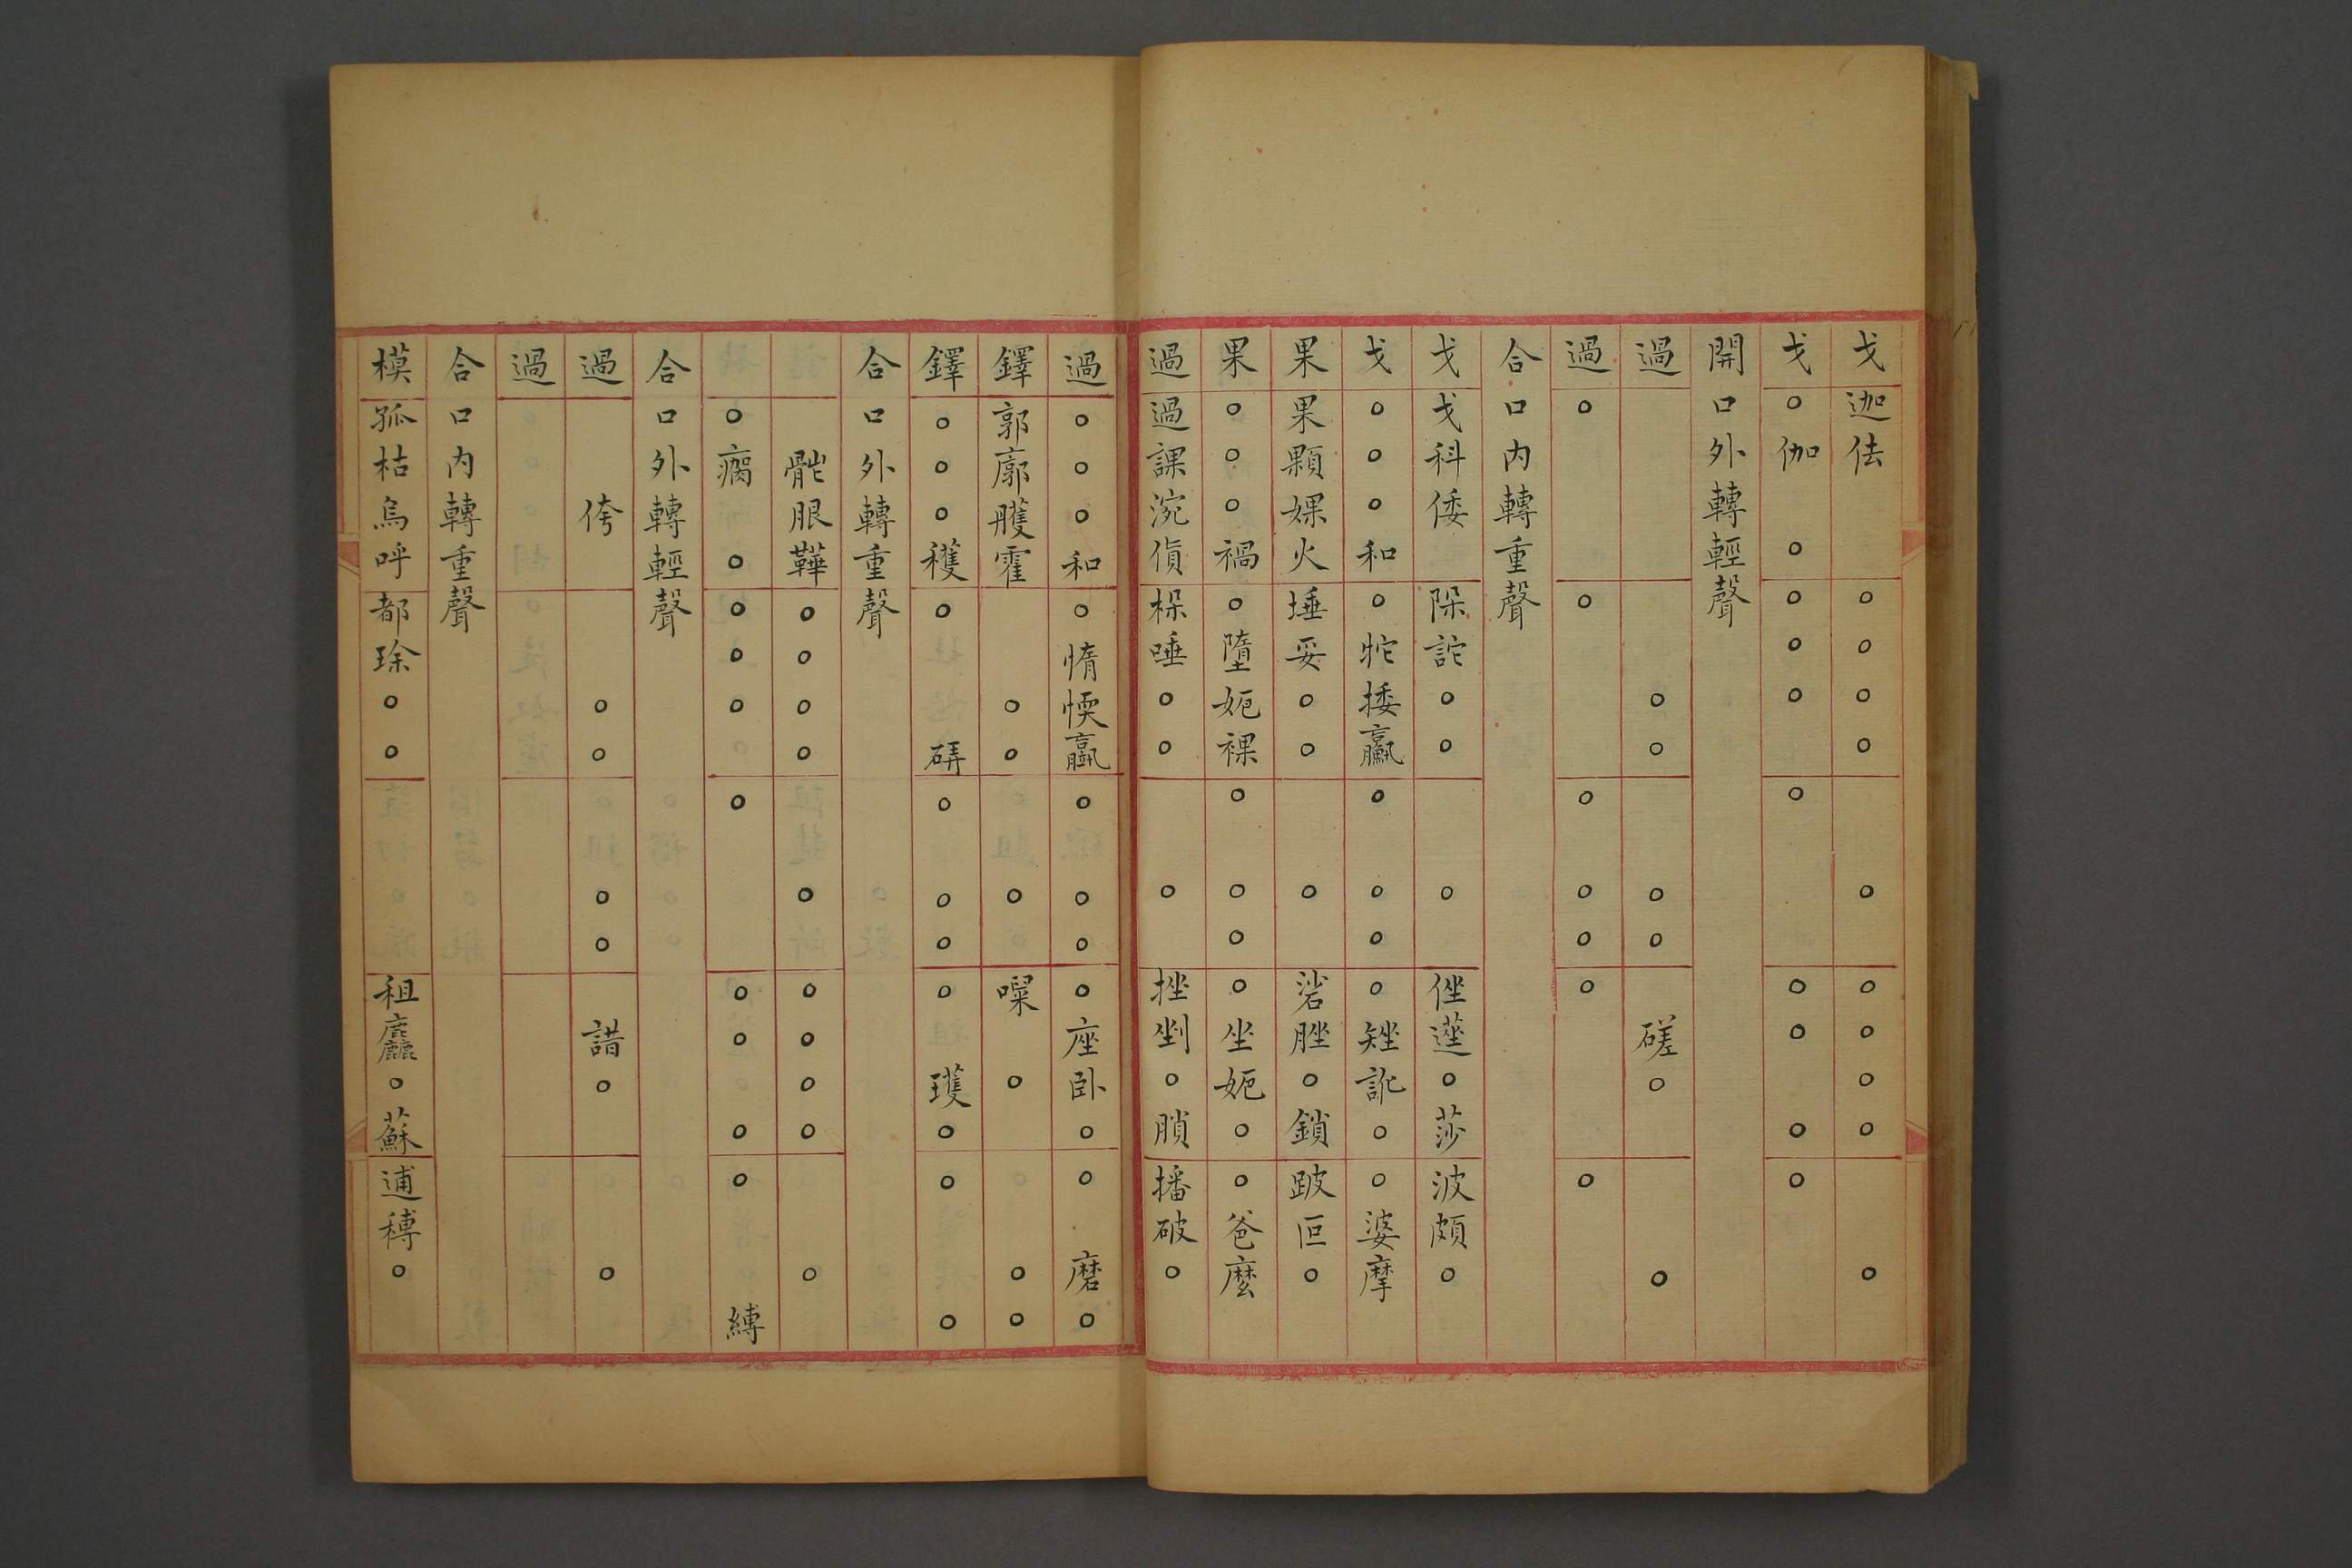 戈迦佉○○○○○○○○○○
戈○伽○○○○○○○○○
開口外轉輕聲
過○○○○磋○○
過○○○○○○○
合口內轉重聲
戈戈科倭𨹃詑○○○㑅遳○莎波頗○
戈○○○和○牠捼臝○○○○矬訛○○婆摩
果果顆婐火埵妥○○○硰脞○鎖跛叵○
果○○○禍○墮妮裸○○○○坐妮○○爸麼
過過課涴貨桗唾○○○挫剉○䏴播破○
過○○○和○惰愞臝○○○○座臥○○磨○
鐸郭廓臒霍○○○㗱○○○
鐸○○○穫○硦○○○○㺢○○○
合口外轉重聲
骴䏎鞾○○○○○○○○○○
○瘸○○○○○○○○○縛
合口外轉輕聲
過侉○○○○諎○○
過
合口內轉重聲
模孤枯烏呼都琭○○租麤○蘇逋𥡮○